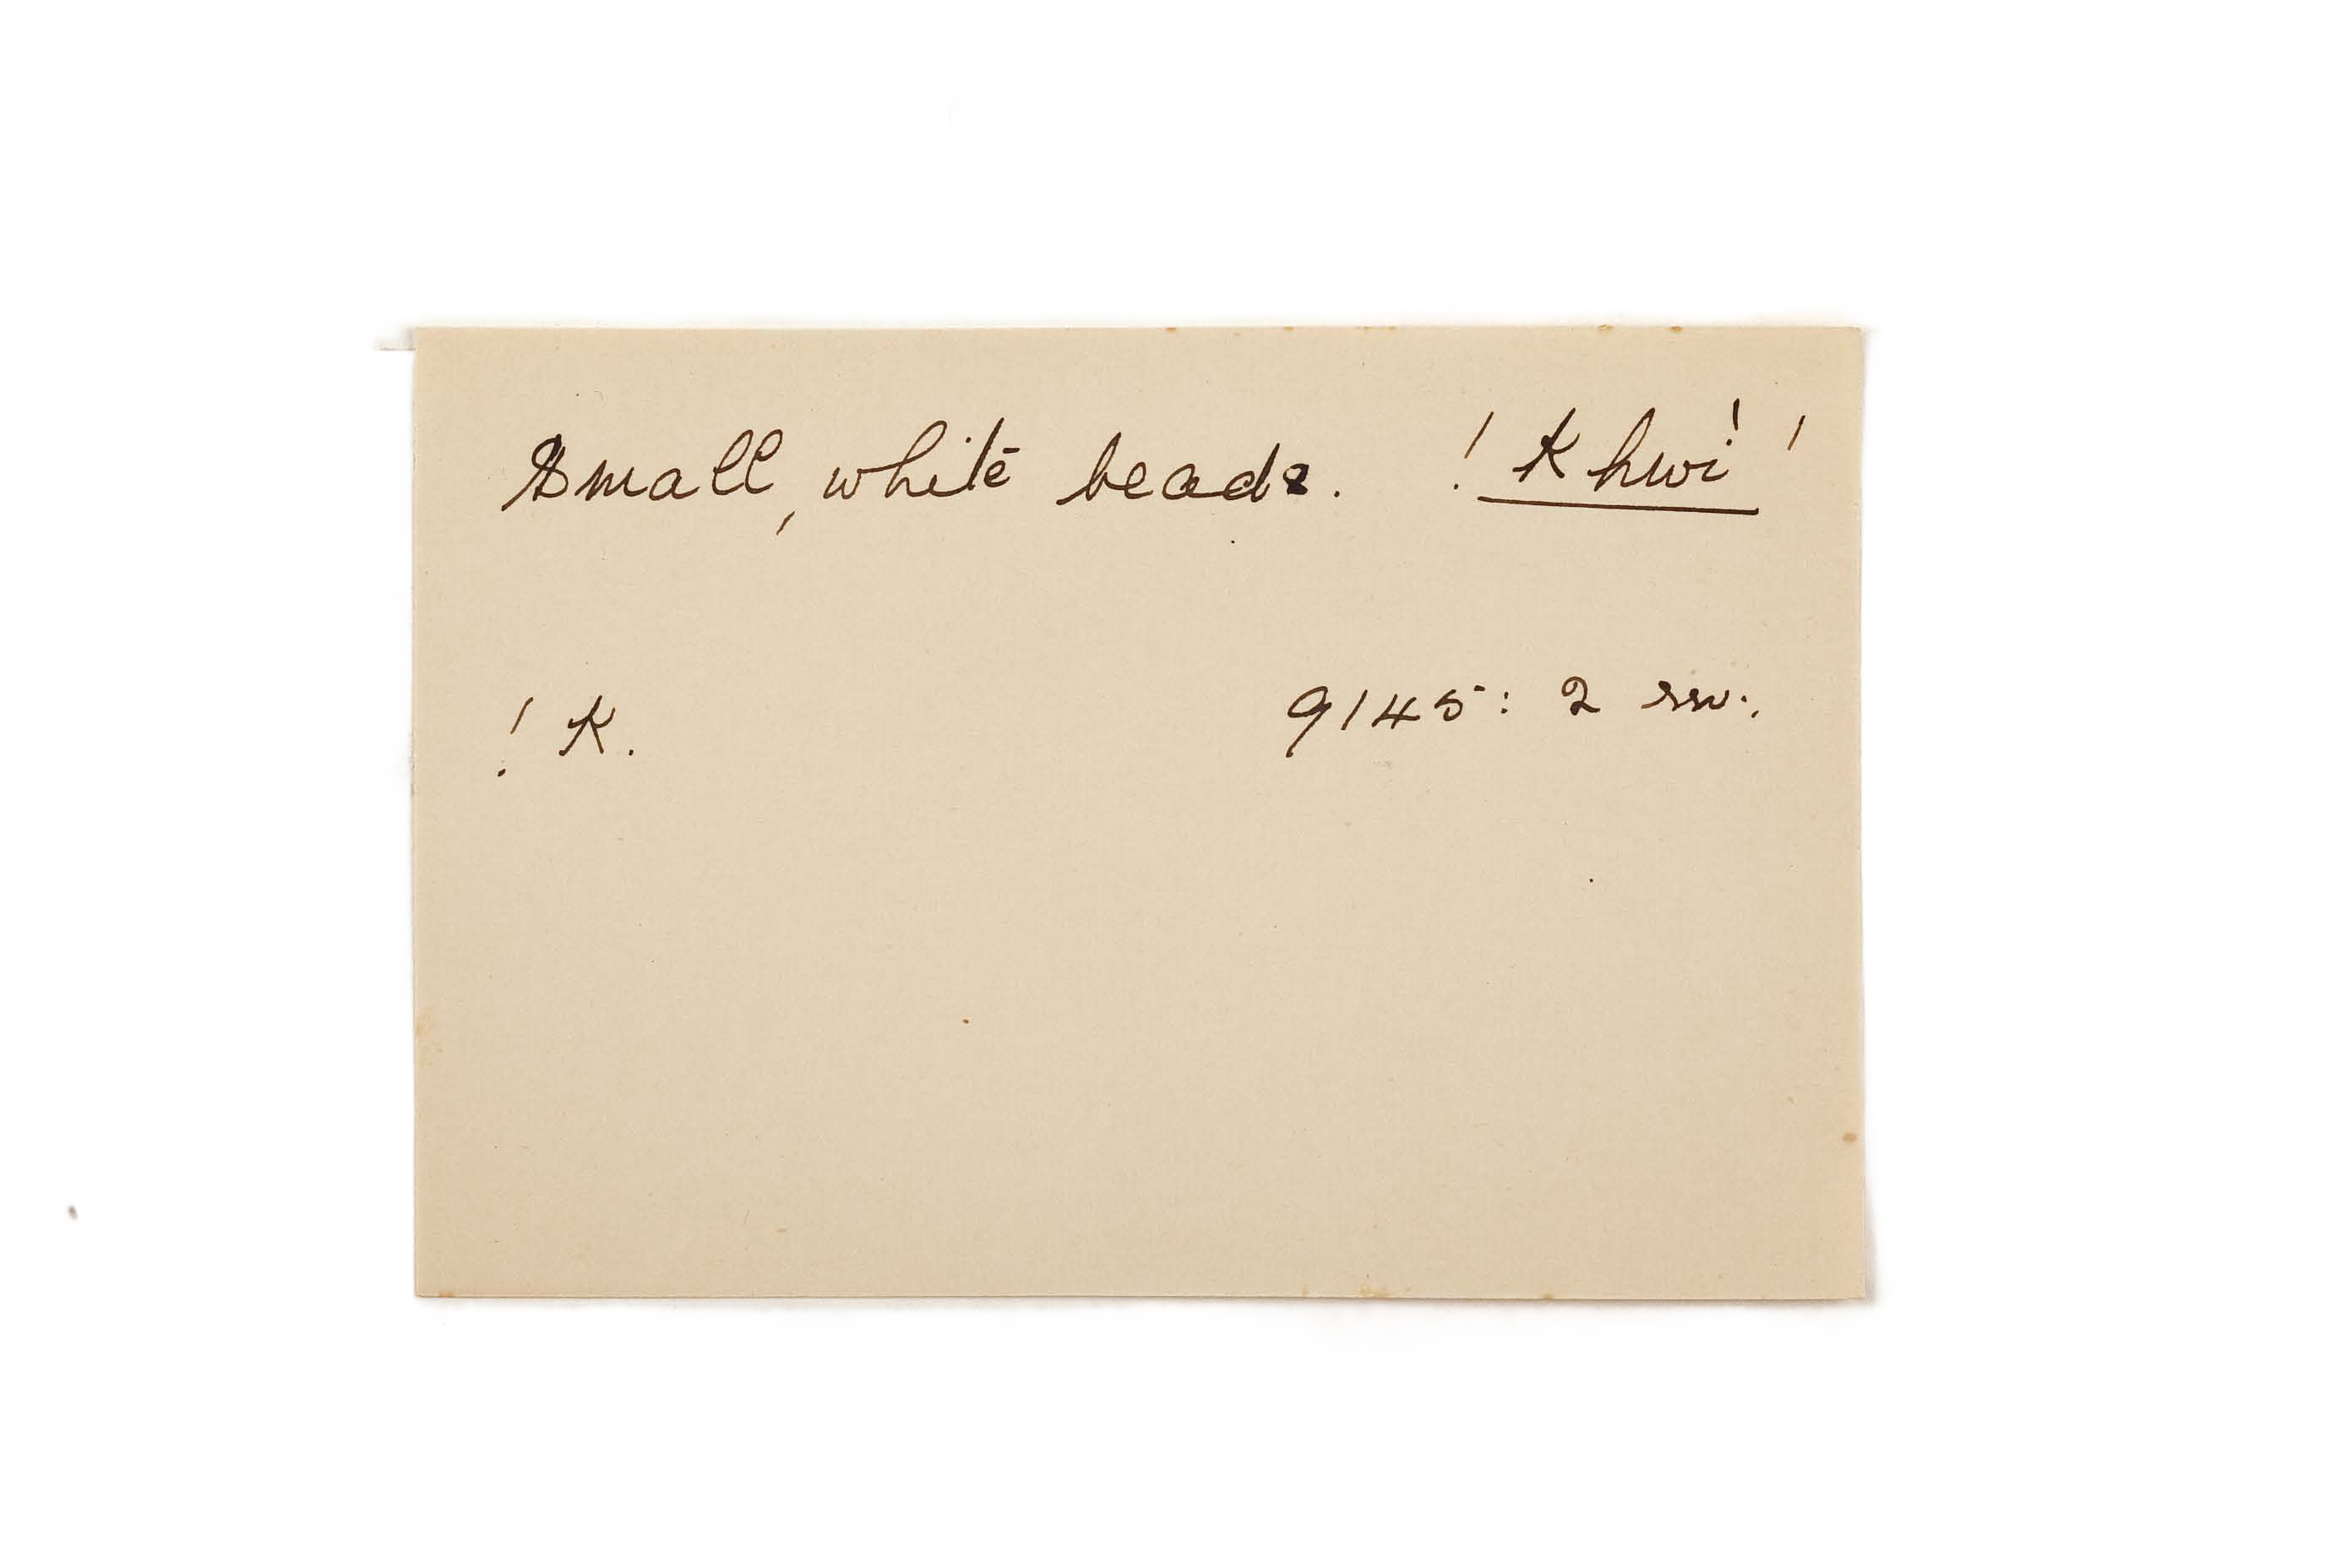 Small, white beads. ! Khwi' '
! K. 9145: 2 rev.